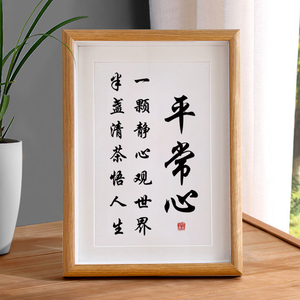 平常心
一颗静心观世界
半盏清茶悟人生